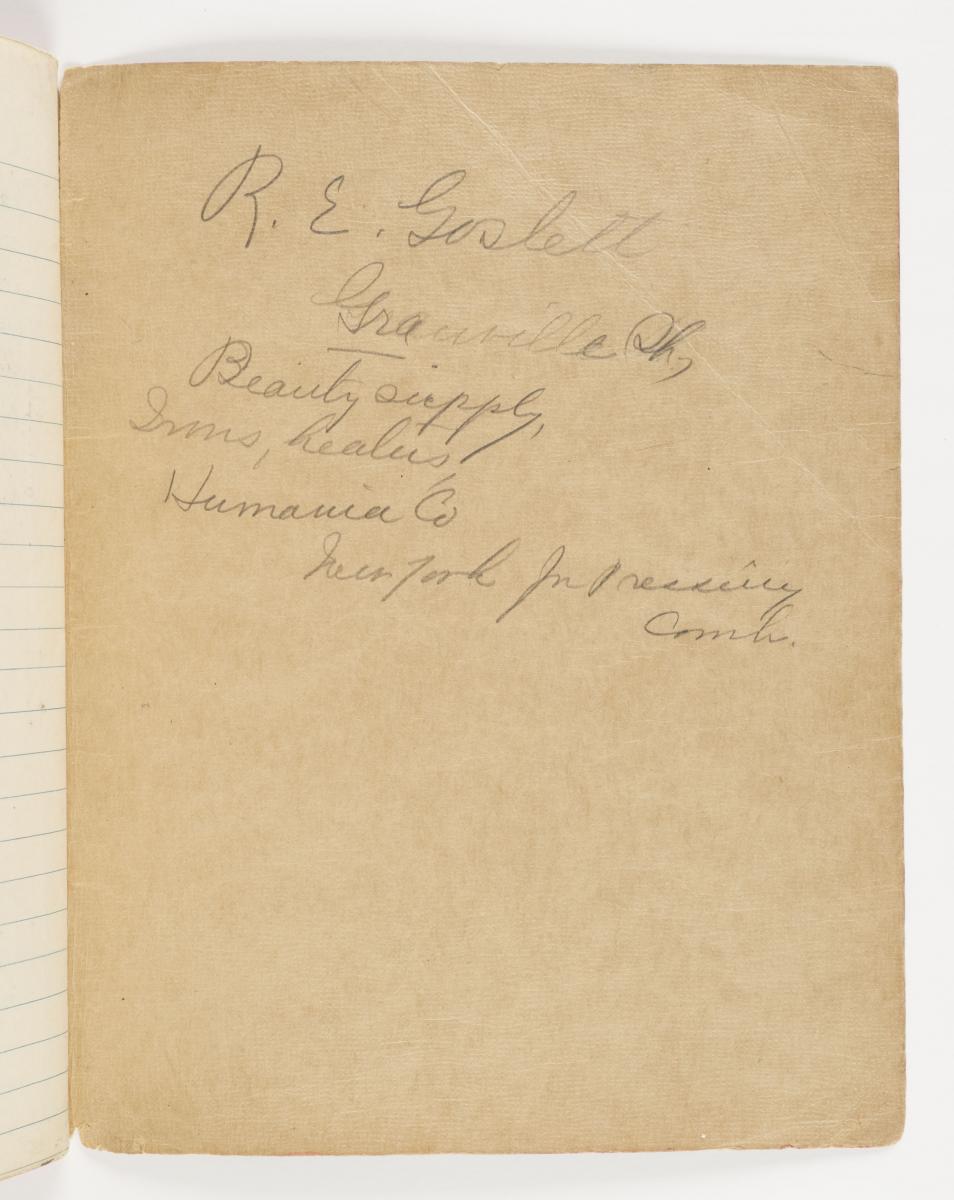 R. E. Goslett
Granville Oh,
Beauty supply,
Irons, heaters,
Humania Co
New York for Pressing
Comb.